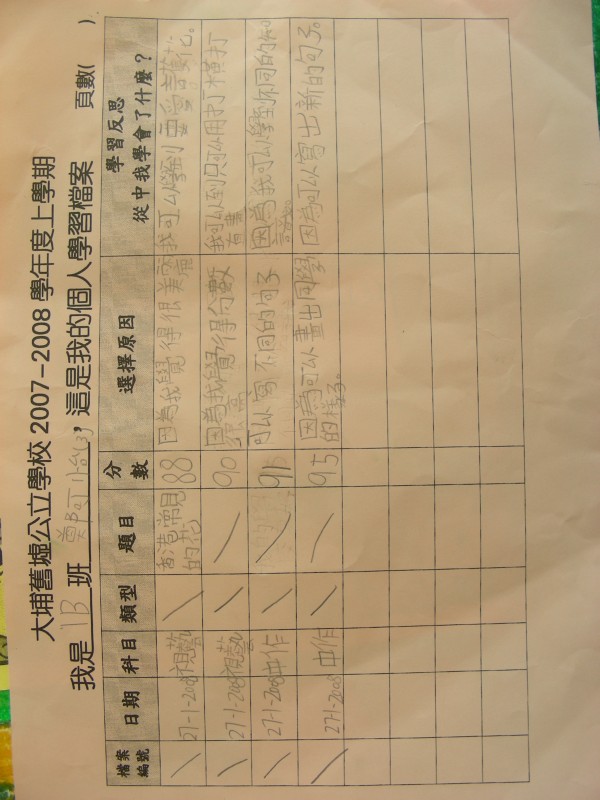 大埔舊墟公立學校 2007-2008 學年度上學期
我是 1B 班, 這是我的個人學習檔案 頁數( )
檔案編號 日期 科目 類型 題目 分數 選擇原因 學習反思 從中我學會了什麼?
27-1-2008 視藝 香港常見的花 88 因為我覺得很美麗 我可以學到要愛護花。
27-1-2008 視藝 90 因為我覺得分數很高
27-1-2008 中作 91 可以寫不同的句子 因為我可以學到不同的
27-1-2008 中作 95 因為可以畫出同學的樣子。 因為可以寫出新的句子。